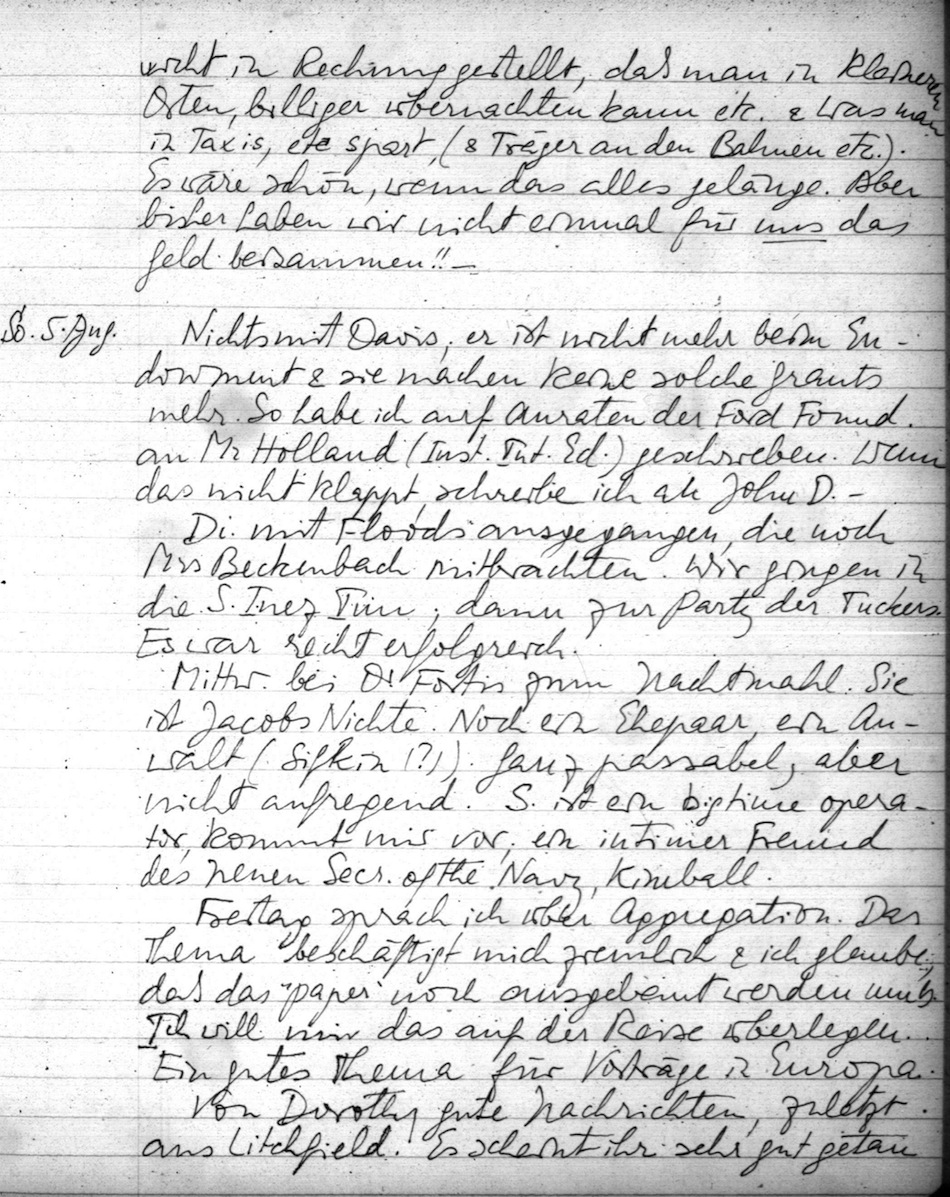 nicht in Rechnung gestellt, daß man in kleineren
Orten, billiger übernachten kann etc. & was man
in Taxis, etc spart, (& Träger an den Bahnen etc.).
Es wäre schön, wenn das alles gelänge. Aber
bisher haben wir nicht einmal für uns das
Geld beisammen!! –
So. 5. Aug. Nichts mit Davis, er ist nicht mehr beim En-
dowment & sie machen keine solche grants
mehr. So habe ich auf Anraten der Ford Found.
an Mr Holland (Inst. Int. Ed.) geschrieben. Wenn
das nicht klappt, schreibe ich an John D. –
Di. mit Floods ausgegangen, die noch
Mrs Beckenbach mitbrachten. Wir gingen in
die S. Inez Inn, dann zur Party der Tuckers.
Es war recht erfolgreich.
Mittw. bei Dr Fortis zum Nachtmahl. Sie
ist Jacobs Nichte. Noch ein Ehepaar, ein An-
walt (Sifkin (?)). Ganz passabel, aber
nicht aufregend. S. ist ein bigtime opera-
tor, kommt mir vor, ein intimer Freund
des neuen Secr. of the Navy, Kimball.
Freitag sprach ich über Aggregation. Das
Thema beschäftigt mich ziemlich & ich glaube,
daß das "paper" noch ausgebaut werden muß.
Ich will mir das auf der Reise überlegen.
Ein gutes Thema für Vorträge in Europa.
Von Dorothy gute Nachrichten, zuletzt
aus Litchfield. Es scheint ihr sehr gut getan